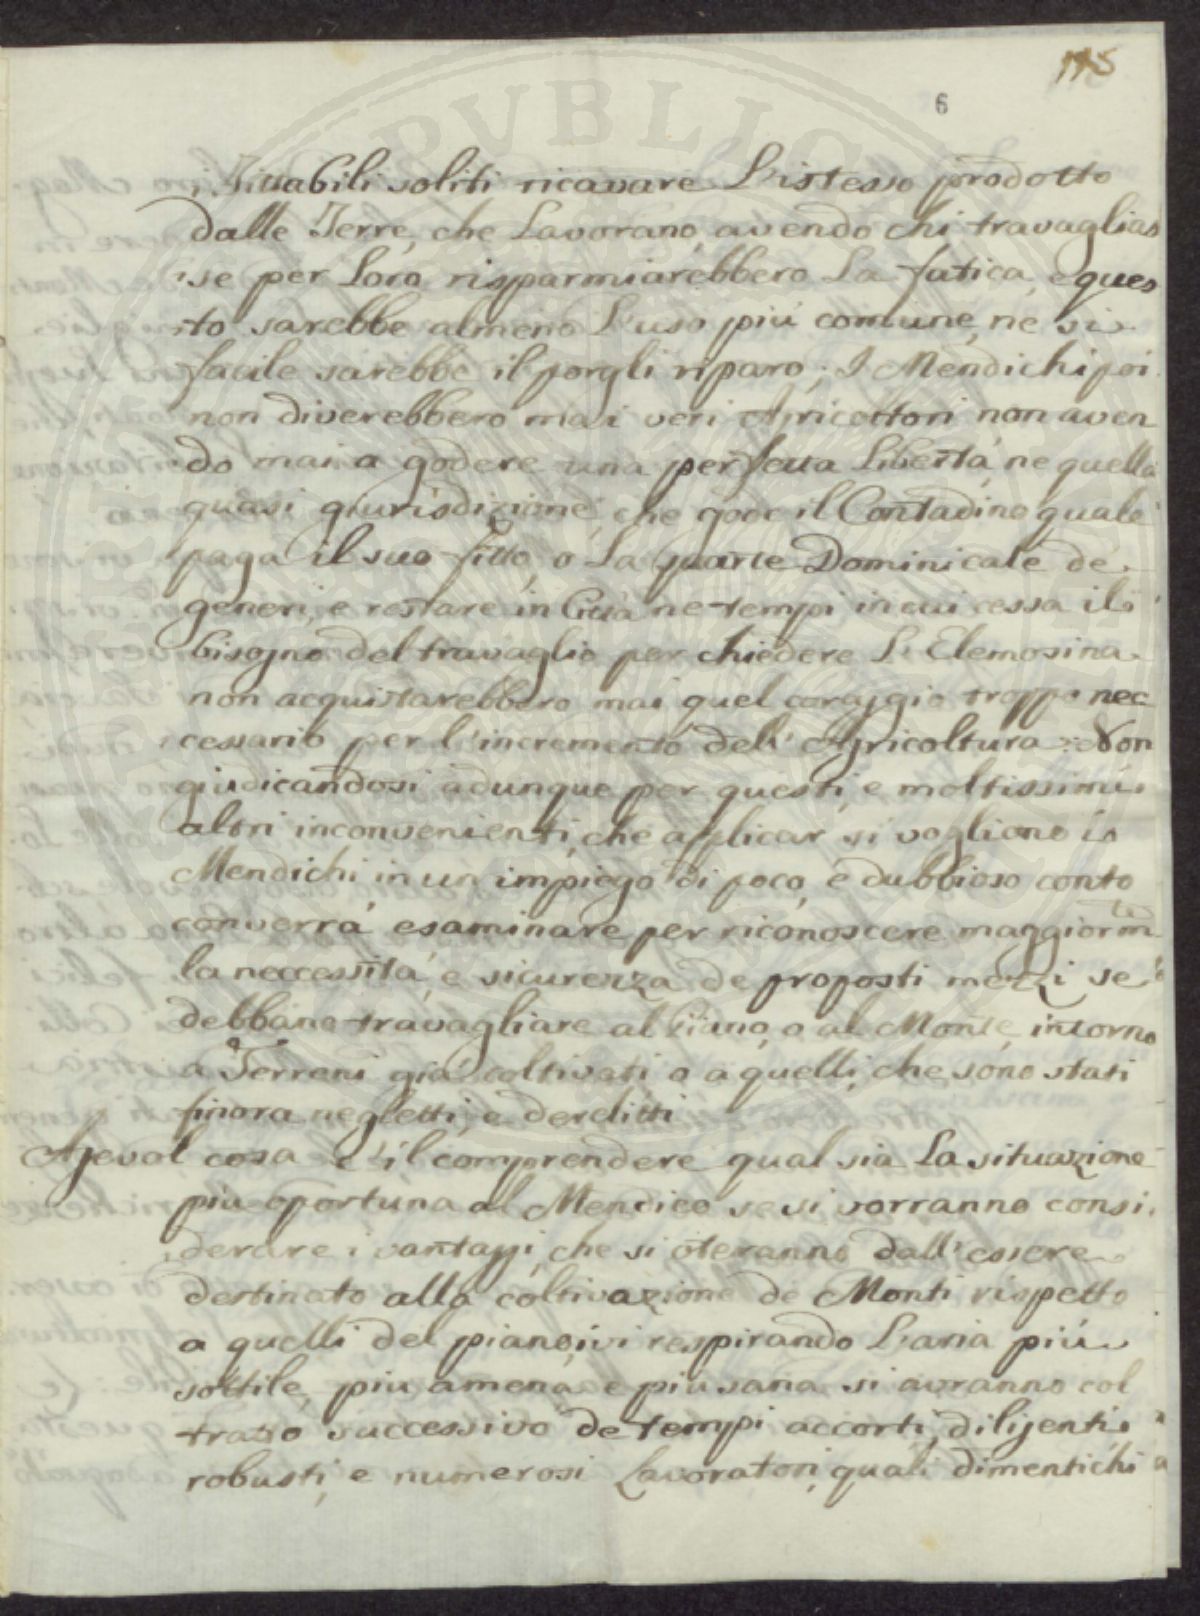 115
6
i Fittabili soliti ricavare l'istesso prodotto
dalle Terre, che Lavorano, avendo chi travaglias
se per Loro risparmiarebbero La fatica, e ques
to sarebbe almeno l'uso più comune, ne si
facile sarebbe il porgli riparo; I Mendichi poi
non diverebbero mai veri Agricottori non aven
do mai a godere una perfetta Libertà, ne quella
quasi giurisdizione, che gode il Contadino quale
paga il suo fitto, o La parte Dominicale de
generi, e restare in Città ne tempi in cui cessa il
bisogno del travaglio per chiedere L'Elemosina
non acquistarebbero mai quel coraggio troppo nec
cessario per l'incremento dell'Agricoltura: Non
giudicandosi adunque per questi, e moltissimi
altri inconvenienti, che applicar si vogliono i
Mendichi in un impiego di poco, e dubbioso conto
converrà esaminare per riconoscere maggiorm.te
la neccessità, e sicurezza de proposti mezzi se
debbano travagliare al Piano, o al Monte, intorno
a Terreni già coltivati o a quelli, che sono stati
finora negletti, e derelitti
Agevol cosa è il comprendere qual sia La situazione
più oportuna al Mendico se si vorranno consi
derare i vantaggi, che si oteranno dall'essere
destinato alla coltivazione de Monti rispetto
a quelli del piano, ivi respirando L'aria più
sottile, più amena, e più sana si avranno col
tratto successivo de tempi accorti, diligenti
robusti, e numerosi Lavoratori, quali dimentichi